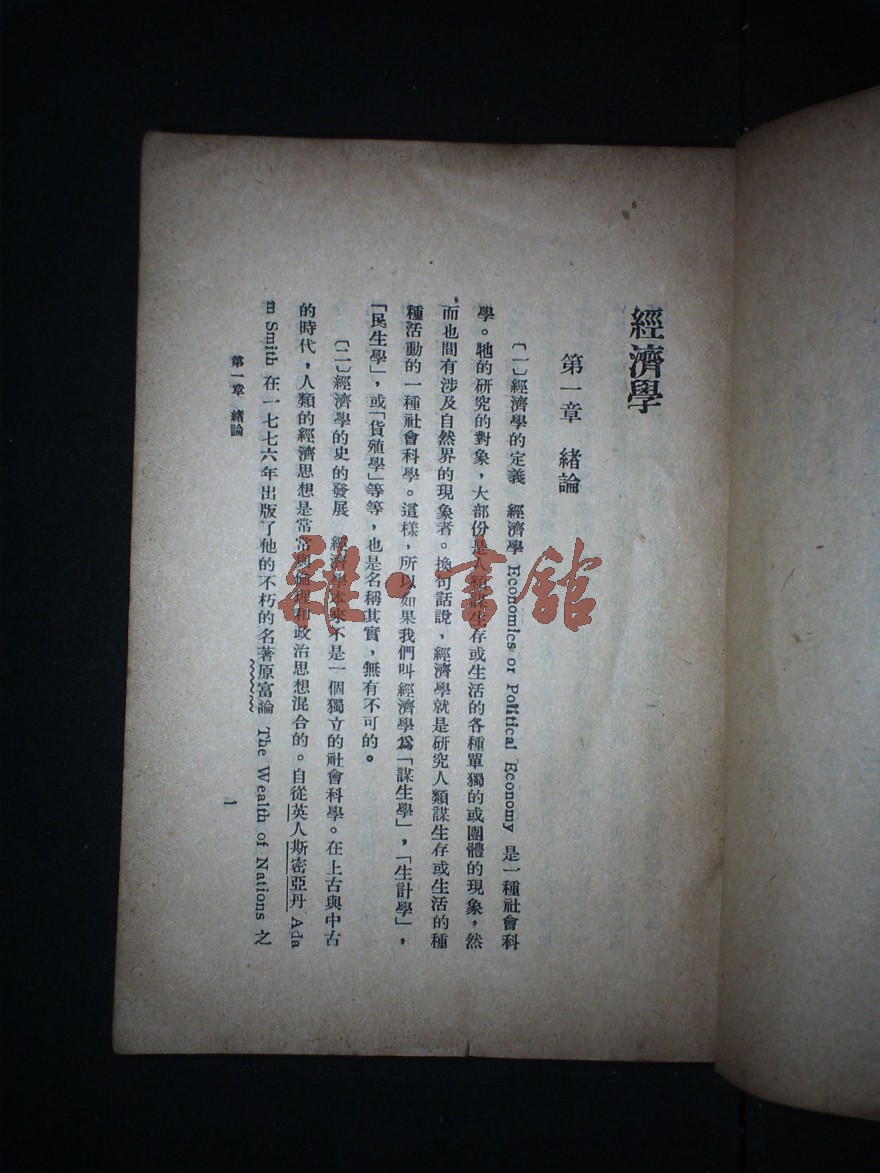 經濟學
第一章　緒論
〔一〕經濟學的定義　經濟學 Economics or Political Economy 是一種社會科
學。牠的研究的對象，大部份是人類謀生存或生活的各種單獨的或團體的現象，然
而也間有涉及自然界的現象者。換句話說，經濟學就是研究人類謀生存或生活的種
種活動的一種社會科學。這樣，所以如果我們叫經濟學爲「謀生學」，「生計學」，
「民生學」，或「貨殖學」等等，也是名稱其實，無有不可的。
〔二〕經濟學的史的發展　經濟學本來不是一個獨立的社會科學。在上古與中古
的時代，人類的經濟思想是常常與倫理和政治思想混合的。自從英人斯密亞丹 Ada
m Smith 在一七七六年出版了他的不朽的名著原富論 The Wealth of Nations 之
第一章　緒論
1
雜·書館